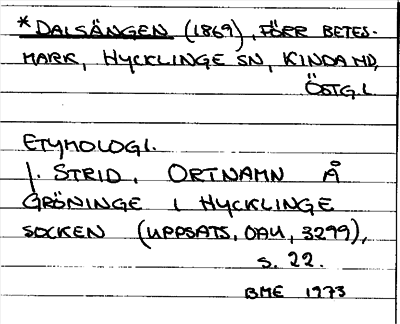 *DALSÄNGEN (1869), FÖRR BETES-
MARK, HYCKLINGE SN, KINDA HD,
ÖSTG.L
ETYMOLOGI.
I. STRID, ORTNAMN Å
GRÖNINGE I HYCKLINGE
SOCKEN (UPPSATS, OAU, 3299),
S. 22.
BME 1973